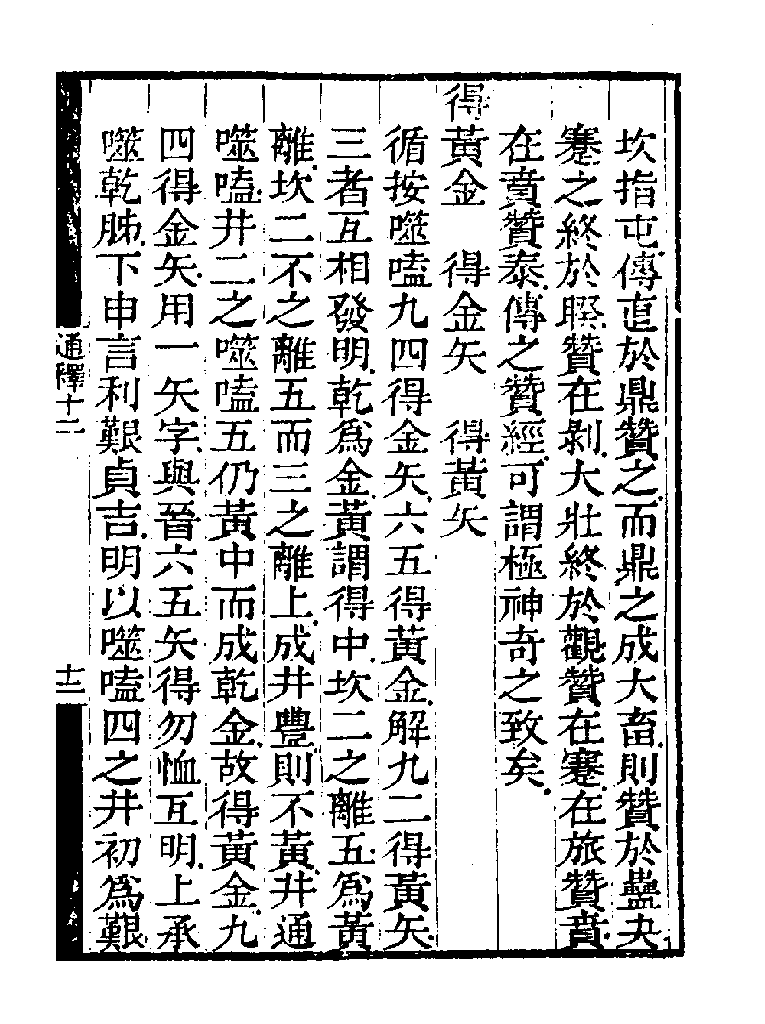 坎指屯傳直於鼎贊之而鼎之成大畜則贊於蠱夬
蹇之終於睽贊在剝大壯終於觀贊在蹇在旅贊賁
在賁贊泰傳之贊經可謂極神奇之致矣
得黃金　得金矢　得黃矢
循按噬嗑九四得金矢六五得黃金解九二得黃矢
三者互相發明乾爲金黃謂得中坎二之離五爲黃
離坎二不之離五而三之離上成井豐則不黃井通
噬嗑井二之噬嗑五仍黃中而成乾金故得黃金九
四得金矢用一矢字與晉六五矢得勿恤互明上承
噬乾胏下申言利艱貞吉明以噬嗑四之井初爲艱
通釋十二
十二